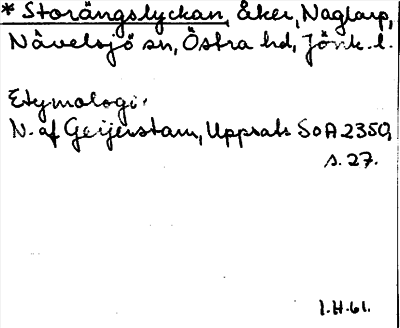 * Storängslyckan, åker, Naglarp,
Nävelsjö sn, Östra hd, Jönk. l.
Etymologi:
N. af Geijerstam, Uppsats SOA 2350,
s. 27.
I.H. 61.